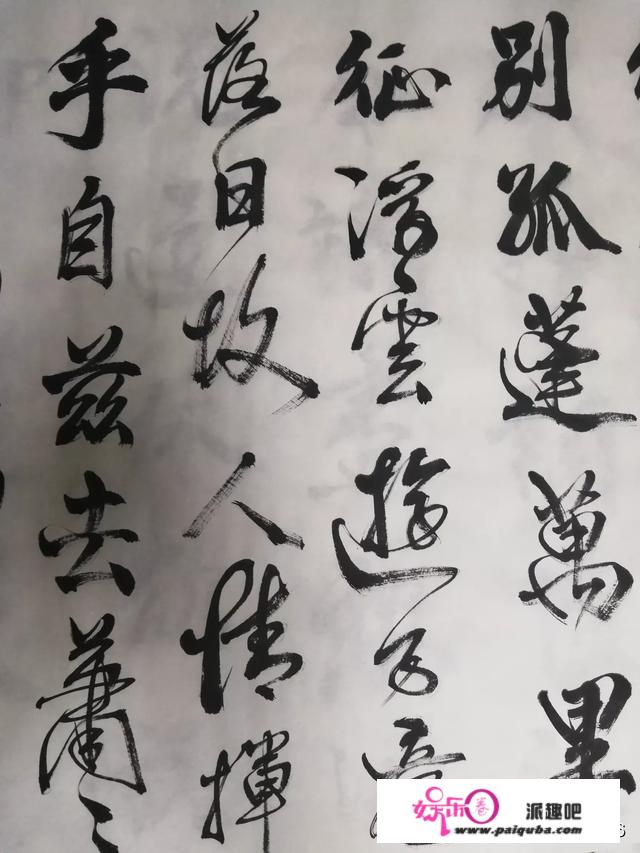 别孤蓬萬里
征浮雲遊子意
落日故人情揮
手自兹去蕭々
娱乐圈 派趣吧
www.paiquba.com